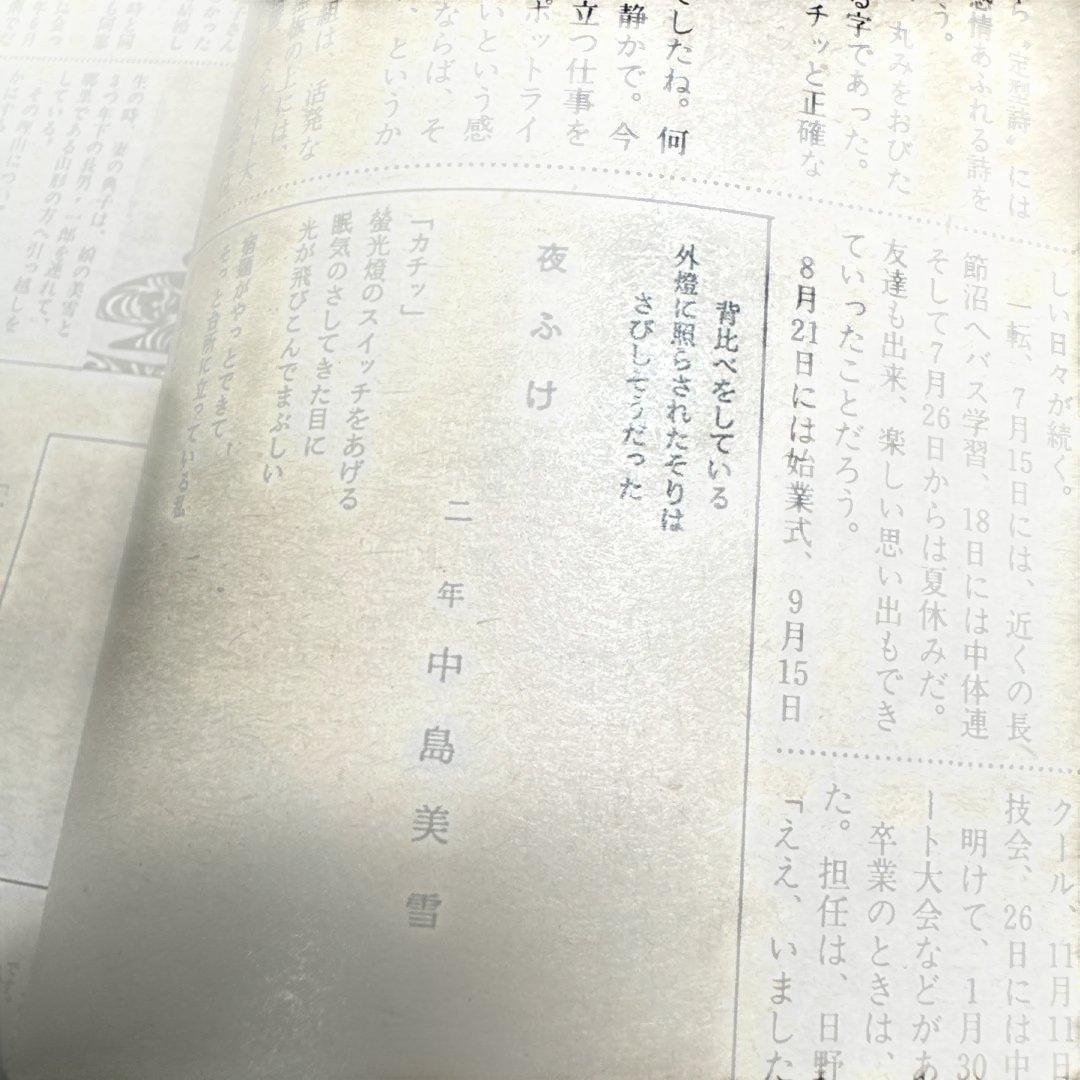 “定型詩”には
感情あふれる詩を
う。
丸みをおびた
る字であった。
チッと正確な
でしたね。何
静かで。今
立つ仕事を
ポットライ
いという感
ならば、そ
、というか
活発な
の上には、
しい日々が続く。
一転、7月15日には、近くの長、
節沼へバス学習、18日には中体連
そして7月26日からは夏休みだ。
友達も出来、楽しい思い出もでき
ていったことだろう。
8月21日には始業式、9月15日
クール、11月11日
技会、26日には中
明けて、1月30
ート大会などがあ
卒業のときは、
た。担任は、日野
「ええ、いました
背比べをしている
外燈に照らされたそりは
さびしそうだった
夜ふけ
二年 中島美雪
「カチッ」
螢光燈のスイッチをあげる
眠気のさしてきた目に
光が飛びこんでまぶしい
宿題がやっとできて、
そっと台所に立っている私
生の時、妻の典子は、娘の美雪と
3つ年下の長男・一郎を連れて、
郷里である山形の方へ引っ越しを
している。
その理由につ